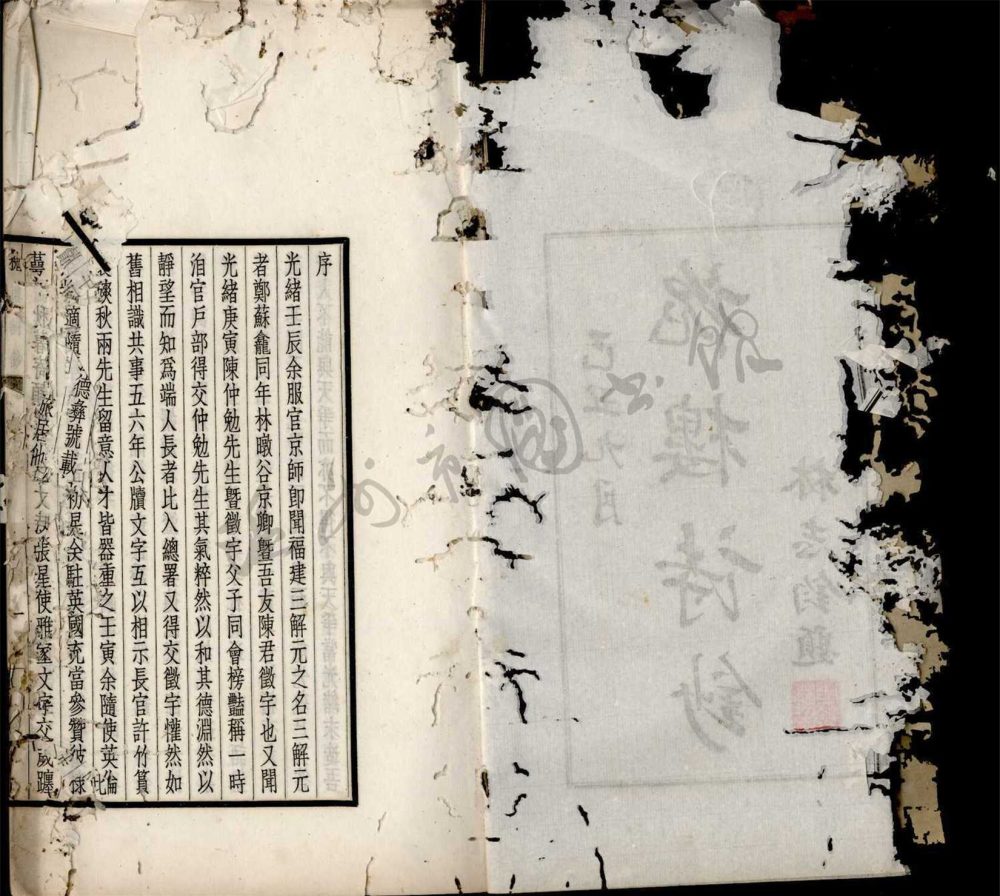 槐樓詩鈔
九月
林志鈞題
序
光緒壬辰余服官京師卽聞福建三解元之名三解元
者鄭蘇龕同年林暾谷京卿暨吾友陳君徵宇也又聞
光緒庚寅陳仲勉先生暨徵宇父子同會榜豔稱一時
洎官戶部得交仲勉先生其氣粹然以和其德淵然以
靜望而知爲端人長者比入總署又得交徵宇懽然如
舊相識共事五六年公牘文字互以相示長官許竹篔
秋兩先生留意人才皆器重之壬寅余隨使英倫
適 德彝號載初 余駐英國充當參贊彼
張星使雅 文字交